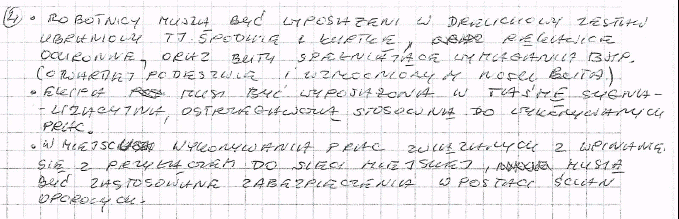 ④ • ROBOTNICY MUSZĄ BYĆ WYPOSAŻENI W DRELICHOWY ZESTAW
UBRANIOWY TJ. SPODNIE I KURTKĘ, RĘKAWICE
OCHRONNE, ORAZ BUTY SPEŁNIAJĄCE WYMAGANIA BHP.
( O TWARDEJ PODESZWIE I WZMOCNIONYM NOSKU BUTA )
• EKIPA MUSI BYĆ WYPOSAŻONA W TAŚMĘ SYGNA-
- LIZACYJNĄ, OSTRZEGAWCZĄ STOSOWNĄ DO WYKONYWANYCH
PRAC.
• W MIEJSCU WYKONYWANIA PRAC ZWIĄZANYCH Z WPINANIEM
SIĘ Z PRZYŁĄCZEM DO SIECI MIEJSKIEJ, MUSZĄ
BYĆ ZASTOSOWANE ZABEZPIECZENIA W POSTACI ŚCIAN
OPOROWYCH.